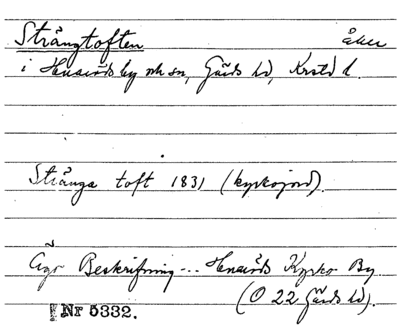 Strängtoften åker
i Huaröds by och sn, Gärds hd, Krstds l.
Stränga toft 1831 (kyrkojord).
Äger Beskrifning... Huaröds Kyrko By
(O 22 Gärds hd).
Nr 5332.